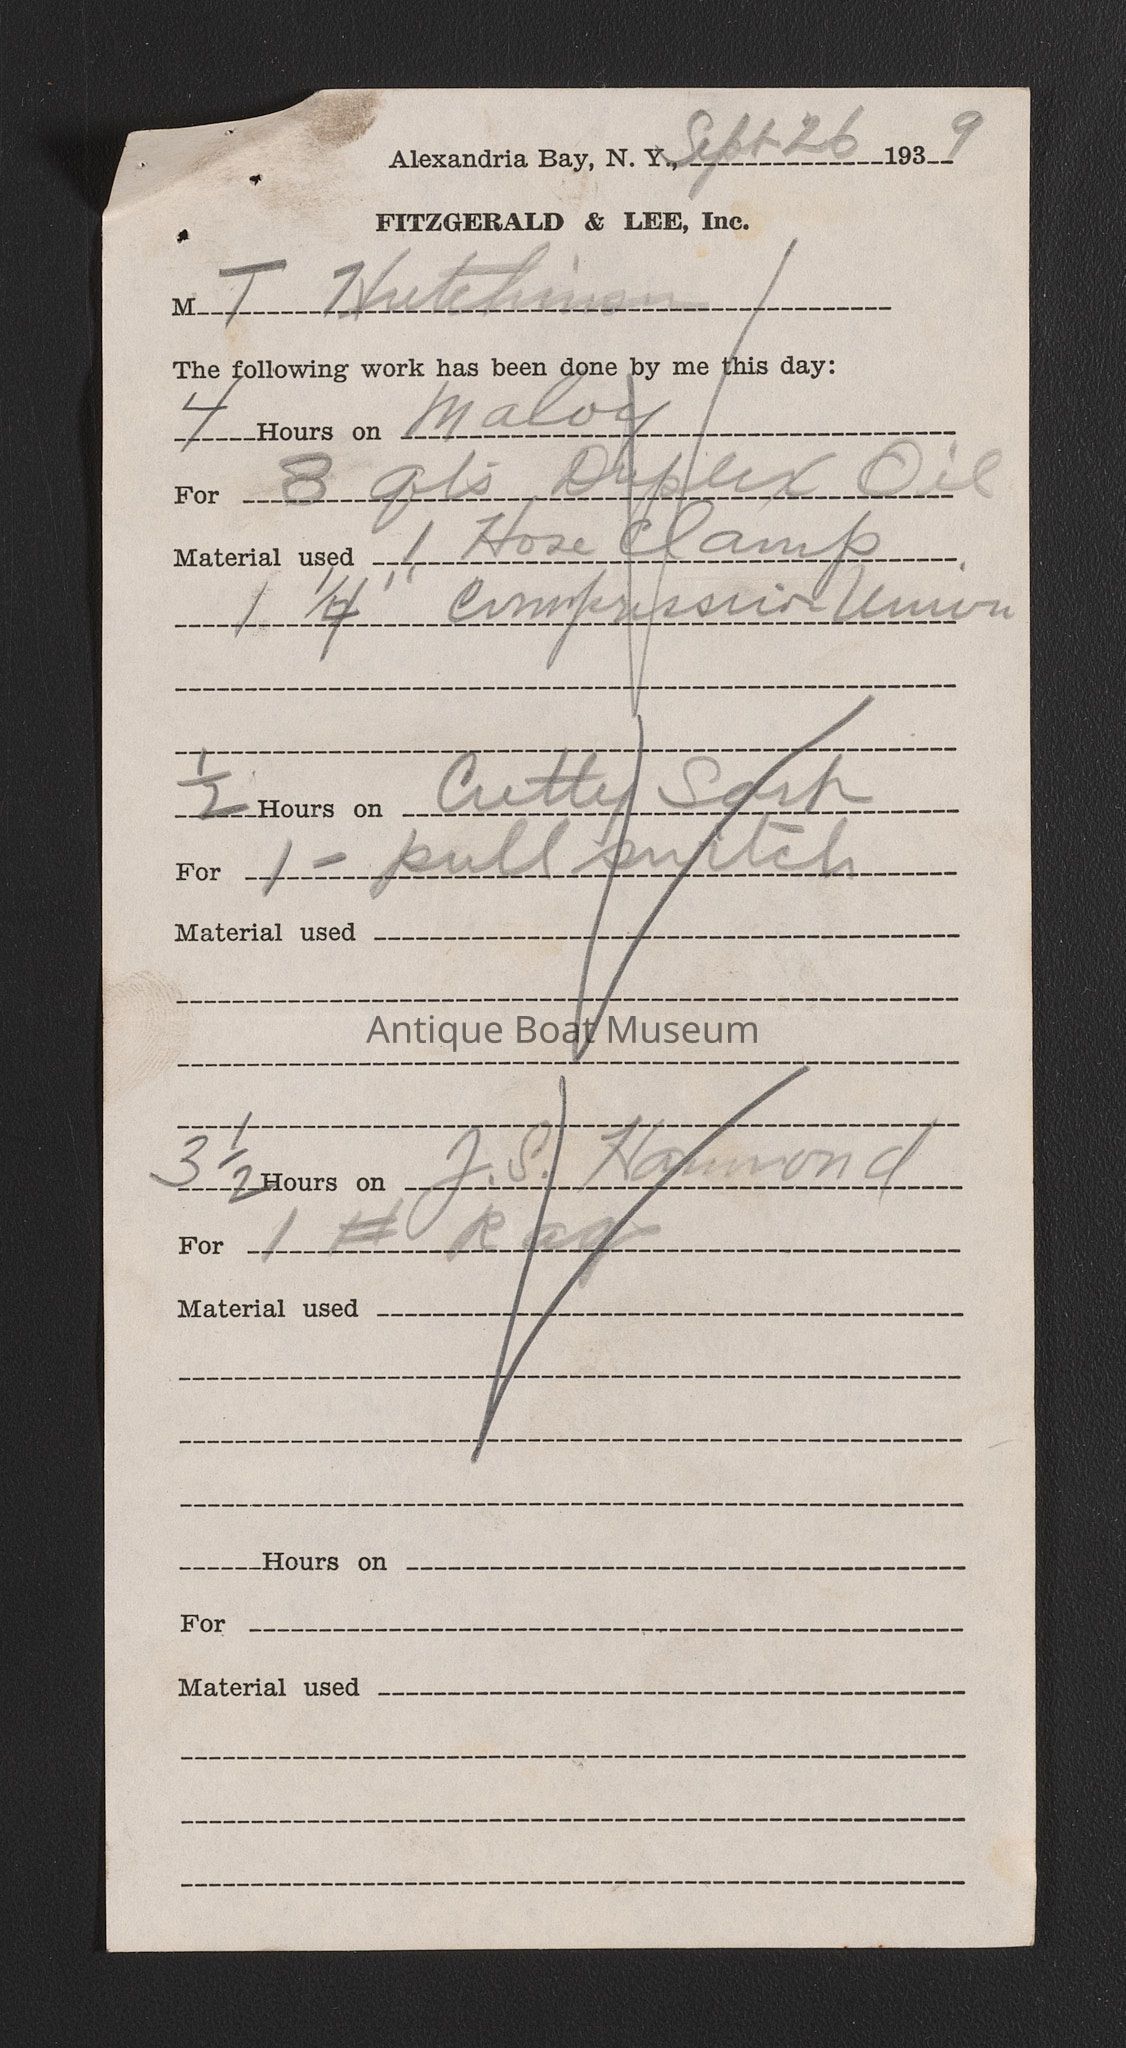 Alexandria Bay, N. Y., Sept 26 1939
FITZGERALD & LEE, Inc.
M T Hutchinson
The following work has been done by me this day:
4 Hours on Maloy
For 8 qts Duplex Oil
Material used 1 Hose Clamp
1 1/4" Compression Union
1/2 Hours on Cutty Sark
For 1 - pull switch
Material used
Antique Boat Museum
3 1/2 Hours on J.S. Hammond
For 1 # Rag
Material used
Hours on
For
Material used